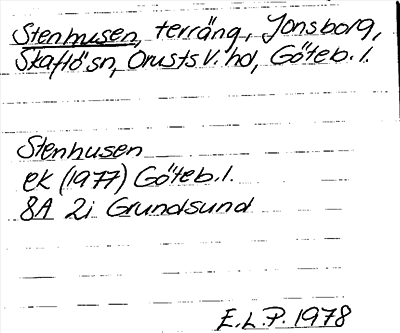 Stenhusen, terräng, Jonsborg,
Skaftö sn, Orusts V. hd, Göteb. l.
Stenhusen
ek (1977) Göteb. l.
8A 2i Grundsund
E.L.P. 1978